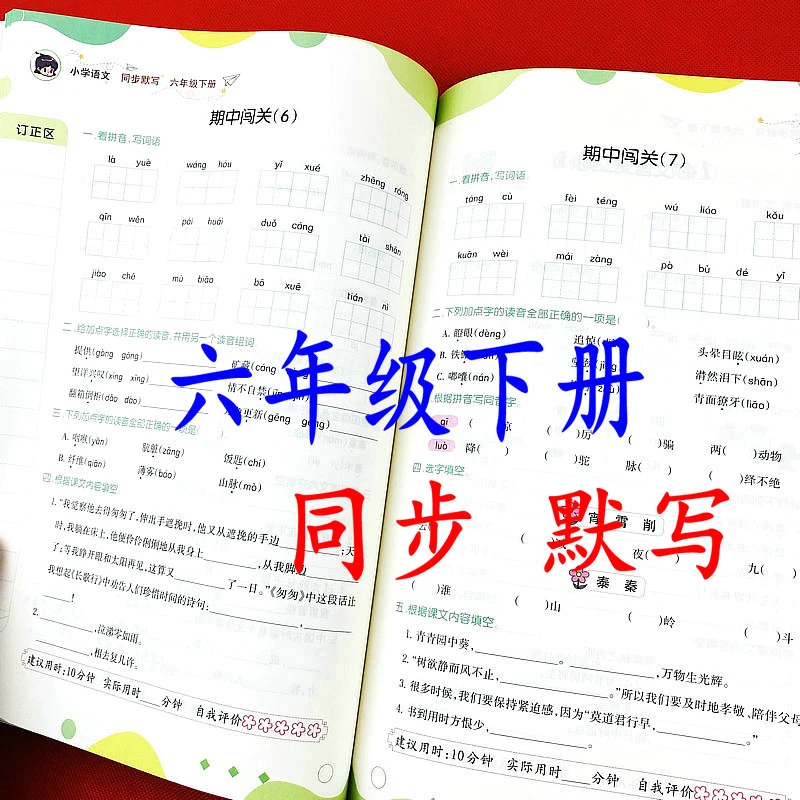 小学语文 同步默写 六年级下册
订正区
期中闯关(6)
一.看拼音,写词语
là yuè wáng hóu yī xué zhēng róng
qīn wěn pái huái duǒ cáng tāi shān
jiào chē mù biāo bō xuē tián nì
二.给加点字选择正确的读音,并用另一个读音组词
提供(gōng gòng) 矿藏(cáng
望洋兴叹(xīng xìng) 情不自禁(jīn
翻箱倒柜(dǎo dào) 更新(gēng gèng)
三.下列加点字的读音全部正确的一项是( )
A.咽喉(yàn) 脏(zāng) 饭匙(chí)
B.纤维(qiān) 薄雾(báo) 山脉(mò)
四.根据课文内容填空
1.“我觉察他去得匆匆了,伸出手遮挽时,他又从遮挽的手边______;天
时,我躺在床上,他便伶伶俐俐地从我身上______,从我脚边
了;等我睁开眼和太阳再见,这算又______了一日。”《匆匆》中这段话让
我想起《长歌行》中劝告人们珍惜时间的诗句:______,______
______!
2.______,泣涕零如雨。
______,相去复几许。
建议用时:10分钟 实际用时____分钟 自我评价
期中闯关(7)
一.看拼音,写词语
táng cù fèi téng wú liáo kǒu
kuān wèi mái zàng pò bù dé yǐ
二.下列加点字的读音全部正确的一项是( )。
A.瞪眼(dèng) 追悼 头晕目眩(xuán)
B.铁 潸然泪下(shān)
C.嘟囔(nán) 青面獠牙(liāo)
根据拼音写同音字
qī ( )凉 ( )厉 ( )骗 两( )动物
luò 降( ) ( )驼 脉( ) ( )绎不绝
四.选字填空
宵 霄 削
云( 夜( 九(
泰 秦
( )淮 ( )山 ( )岭 ( )斗
五.根据课文内容填空
1.青青园中葵,______。______,万物生光辉。
2.“树欲静而风不止,______。”所以我们要及时地孝敬、陪伴父母
3.很多时候,我们要保持紧迫感,因为“莫道君行早,______。”
4.书到用时方恨少,______。
建议用时:10分钟 实际用时____分钟 自我评价
六年级下册
同步 默写